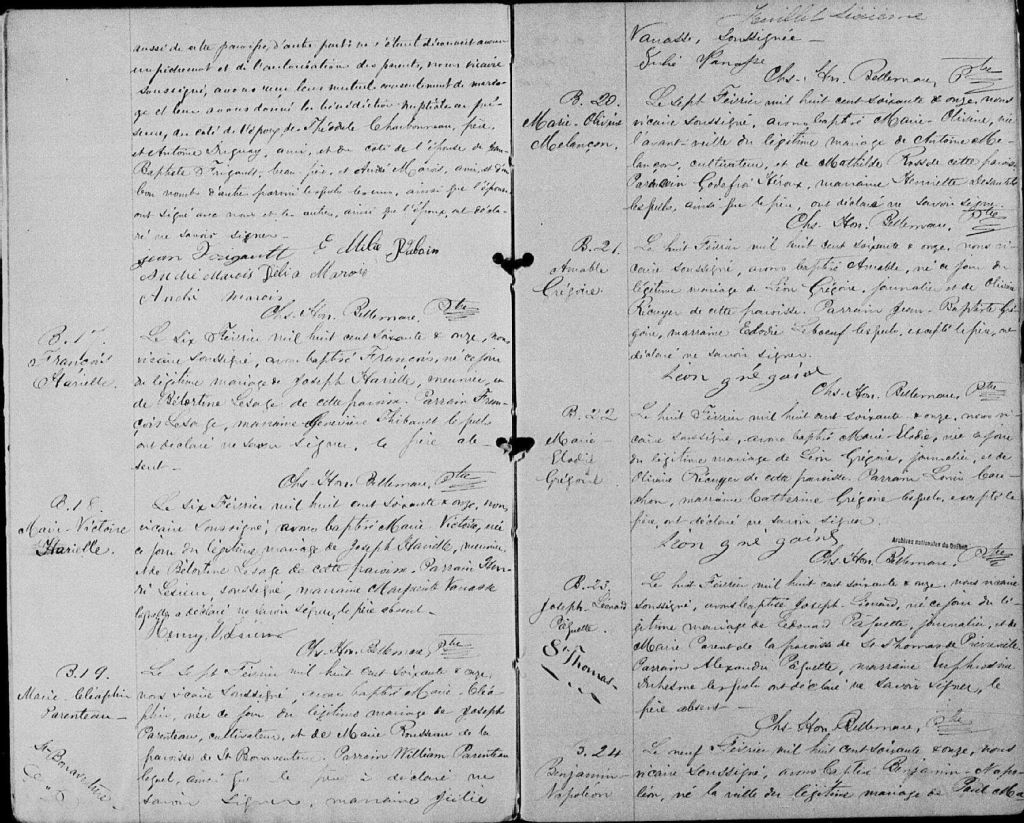 aussi de cette paroisse, d'autre part; ne s'étant découvert aucun
empêchement et de l'autorisation des parents, nous vicaire
soussigné, avons reçu leur mutuel consentement de maria-
ge et leur avons donné la bénédiction nuptiale en pré-
sence, du coté de l'époux de Théodule Charbonneau, père,
et Antoine Duguay, ami, et du coté de l'épouse de Jean
Baptiste D. beau-père, et André Marois, ami, et d'un
bon nombre d'autre parmi lesquels ainsi que l'épouse
ont signé avec nous et les autres, ainsi que l'époux, ont décla-
ré ne savoir signer.
André Marois Délia Marois
André Marois
Chs. Hon. Bellemare, Ptre
B. 17.
François
Harielle.
Le six Février mil huit cent soixante & onze, nous
vicaire soussigné, avons baptisé François, né ce jour
du légitime mariage de Joseph Harielle, meunier, et
de Bélertine Lesage de cette paroisse. Parrain Fran-
çois Lesage, marraine Geneviève Thibault lesquels
ont déclaré ne savoir signer, le père ab-
sent.—
Chs. Hon. Bellemare, Ptre
B. 18.
Marie-Victoire
Harielle.
Le six Février mil huit cent soixante & onze, nous
vicaire soussigné, avons baptisé Marie Victoire, née
ce jour du légitime mariage de Joseph Harielle, meunier,
& de Bélertine Lesage de cette paroisse. Parrain Hen-
ri Lesieur, soussigné, marraine Marguerite Vanasse
laquelle a déclaré ne savoir signer, le père absent.—
Henry Lesieur
Chs. Hon. Bellemare, Ptre
B. 19.
Marie Cléophée
Parenteau—
St Bonaventure
Le sept Février mil huit cent soixante & onze,
nous vicaire soussigné, avons baptisé Marie Cléo-
phée, née ce jour du légitime mariage de Joseph
Parenteau, cultivateur, et de Marie Rousseau de la
paroisse de St Bonaventure. Parrain William Parenteau
lequel, ainsi que le père a déclaré ne
savoir signer, marraine Julie
Feuillet sixième
Vanasse, soussignée—
Julie Vanasse
Chs. Hon. Bellemare, Ptre
B. 20.
Marie-Olivine
Melançon.
Le sept Février mil huit cent soixante & onze, nous
vicaire soussigné, avons baptisé Marie-Olivine, née
l'avant-veille du légitime mariage de Antoine Me-
lançon, cultivateur, et de Mathilde Ross de cette paroisse.
Parrain Godefroi Héroux, marraine Henriette
lesquels, ainsi que le père, ont déclaré ne savoir signer.
Chs. Hon. Bellemare, Ptre
B. 21.
Amable
Grégoire.
Le huit Février mil huit cent soixante & onze, nous vi-
caire soussigné, avons baptisé Amable, né ce jour du
légitime mariage de Léon Grégoire, journalier et de Olivine
Récuyer de cette paroisse. Parrain Jean-Baptiste Gré-
goire, marraine Elodie Leboeuf lesquels, excepté le père, ont
déclaré ne savoir signer.
Leon gré goire
Chs. Hon. Bellemare, Ptre
B. 22
Marie
Elodie
Grégoire
Le huit Février mil huit cent soixante & onze, nous vi-
caire soussigné, avons baptisé Marie-Elodie, née ce jour
du légitime mariage de Léon Grégoire, journalier, et de
Olivine Récuyer de cette paroisse. Parrain Louis Cau-
chon, marraine Catherine Grégoire lesquels, excepté le
père, ont déclaré ne savoir signer.
Leon gré goire
Archives nationales du Québec
Chs. Hon. Bellemare, Ptre
B. 23.
Joseph-Léonard
Paquette.
St Thomas—
Le huit Février mil huit cent soixante & onze, nous vicaire
soussigné, avons baptisé Joseph-Léonard, né ce jour du lé-
gitime mariage de Edouard Paquette, journalier, et de
Marie Parent de la paroisse de St Thomas de Pierreville.
Parrain Alexandre Paquette, marraine Euphrosine
Duhesme lesquels ont déclaré ne savoir signer, le
père absent—
Chs. Hon. Bellemare, Ptre
B. 24
Benjamin-
Napoléon
Le neuf Février mil huit cent soixante & onze, nous
vicaire soussigné, avons baptisé Benjamin-Napo-
léon, né la veille du légitime mariage de Paul